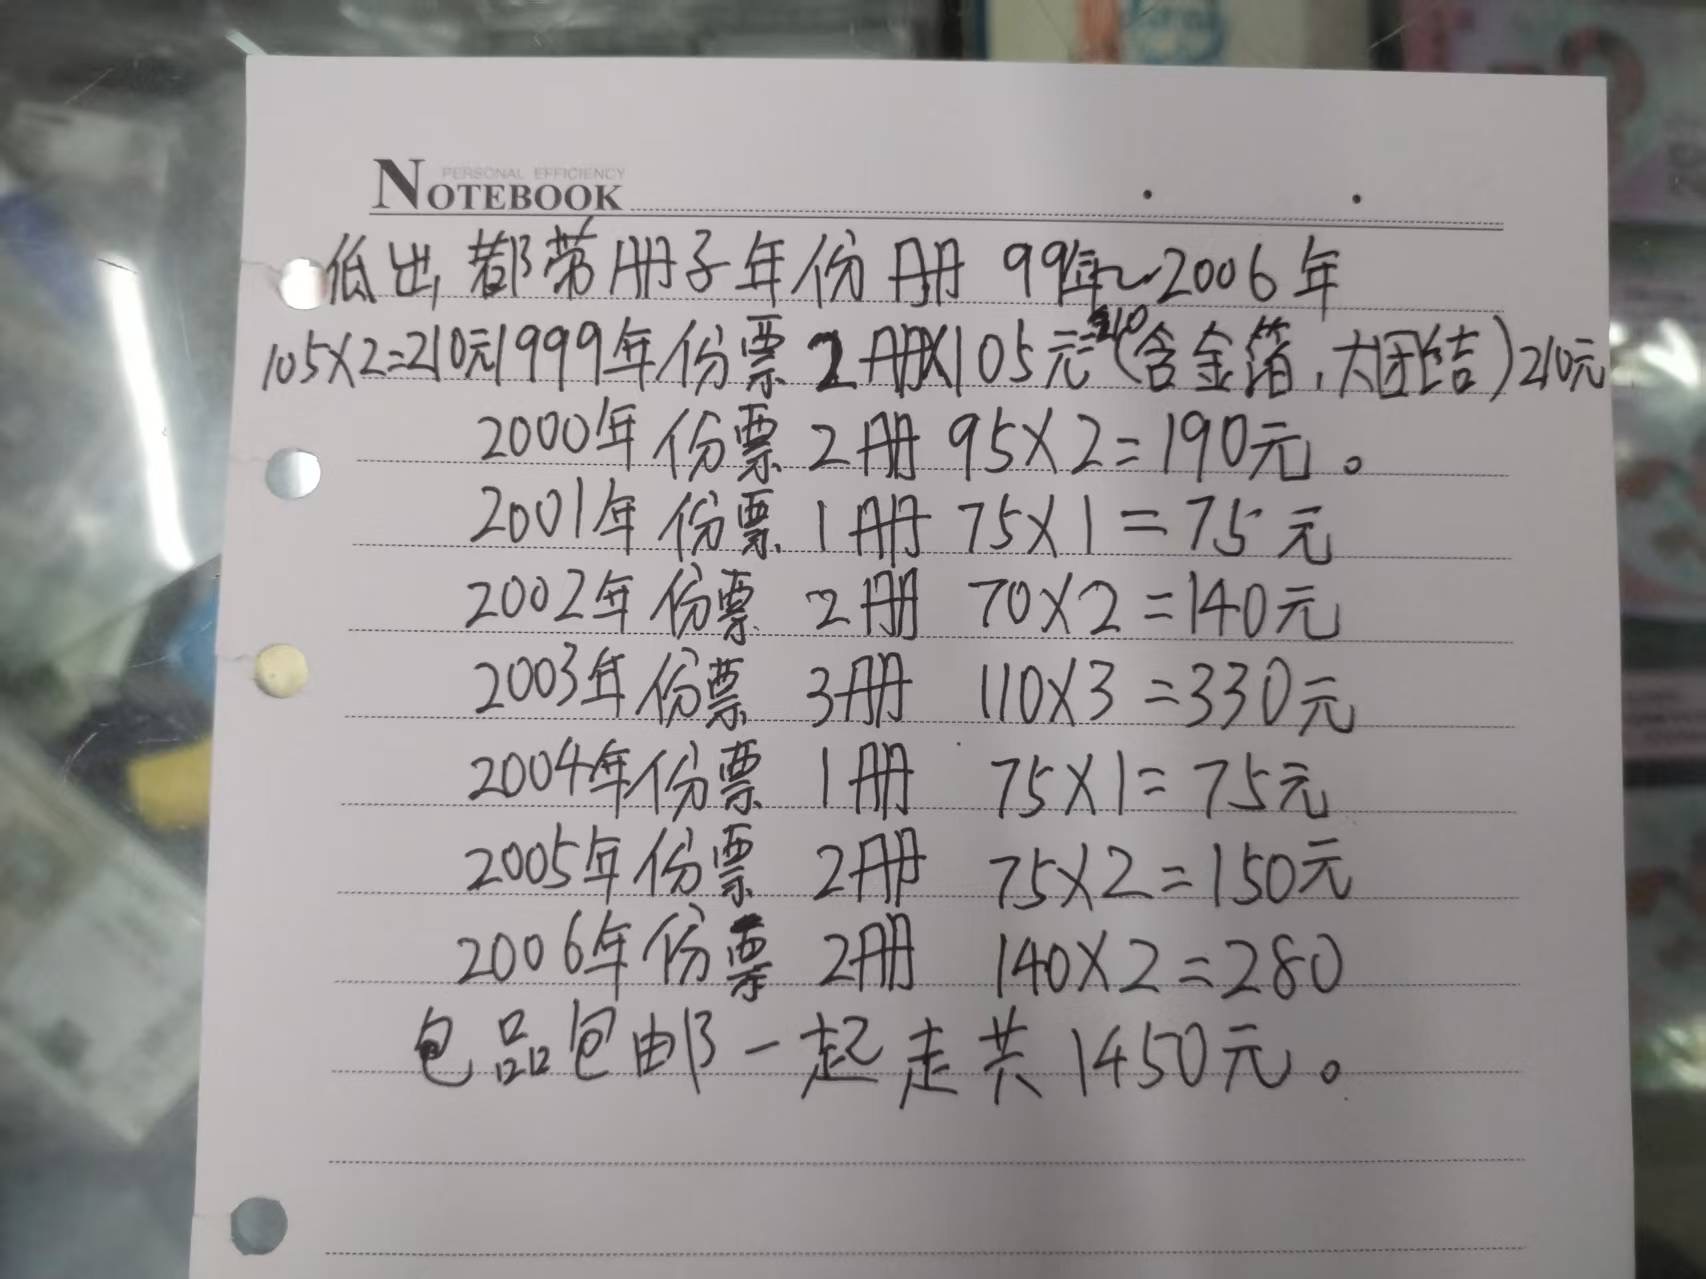 PERSONAL EFFICIENCY
NOTEBOOK
低出都带册子年份册 99年~2006年
105X2=210元1999年份票2册X105元=210(含金箔,大团结)210元
2000年份票2册 95X2=190元。
2001年份票1册 75X1=75元
2002年份票 2册 70X2=140元
2003年份票 3册 110X3=330元
2004年份票 1册 75X1=75元
2005年份票 2册 75X2=150元
2006年份票 2册 140X2=280
包品包邮一起走共1450元。